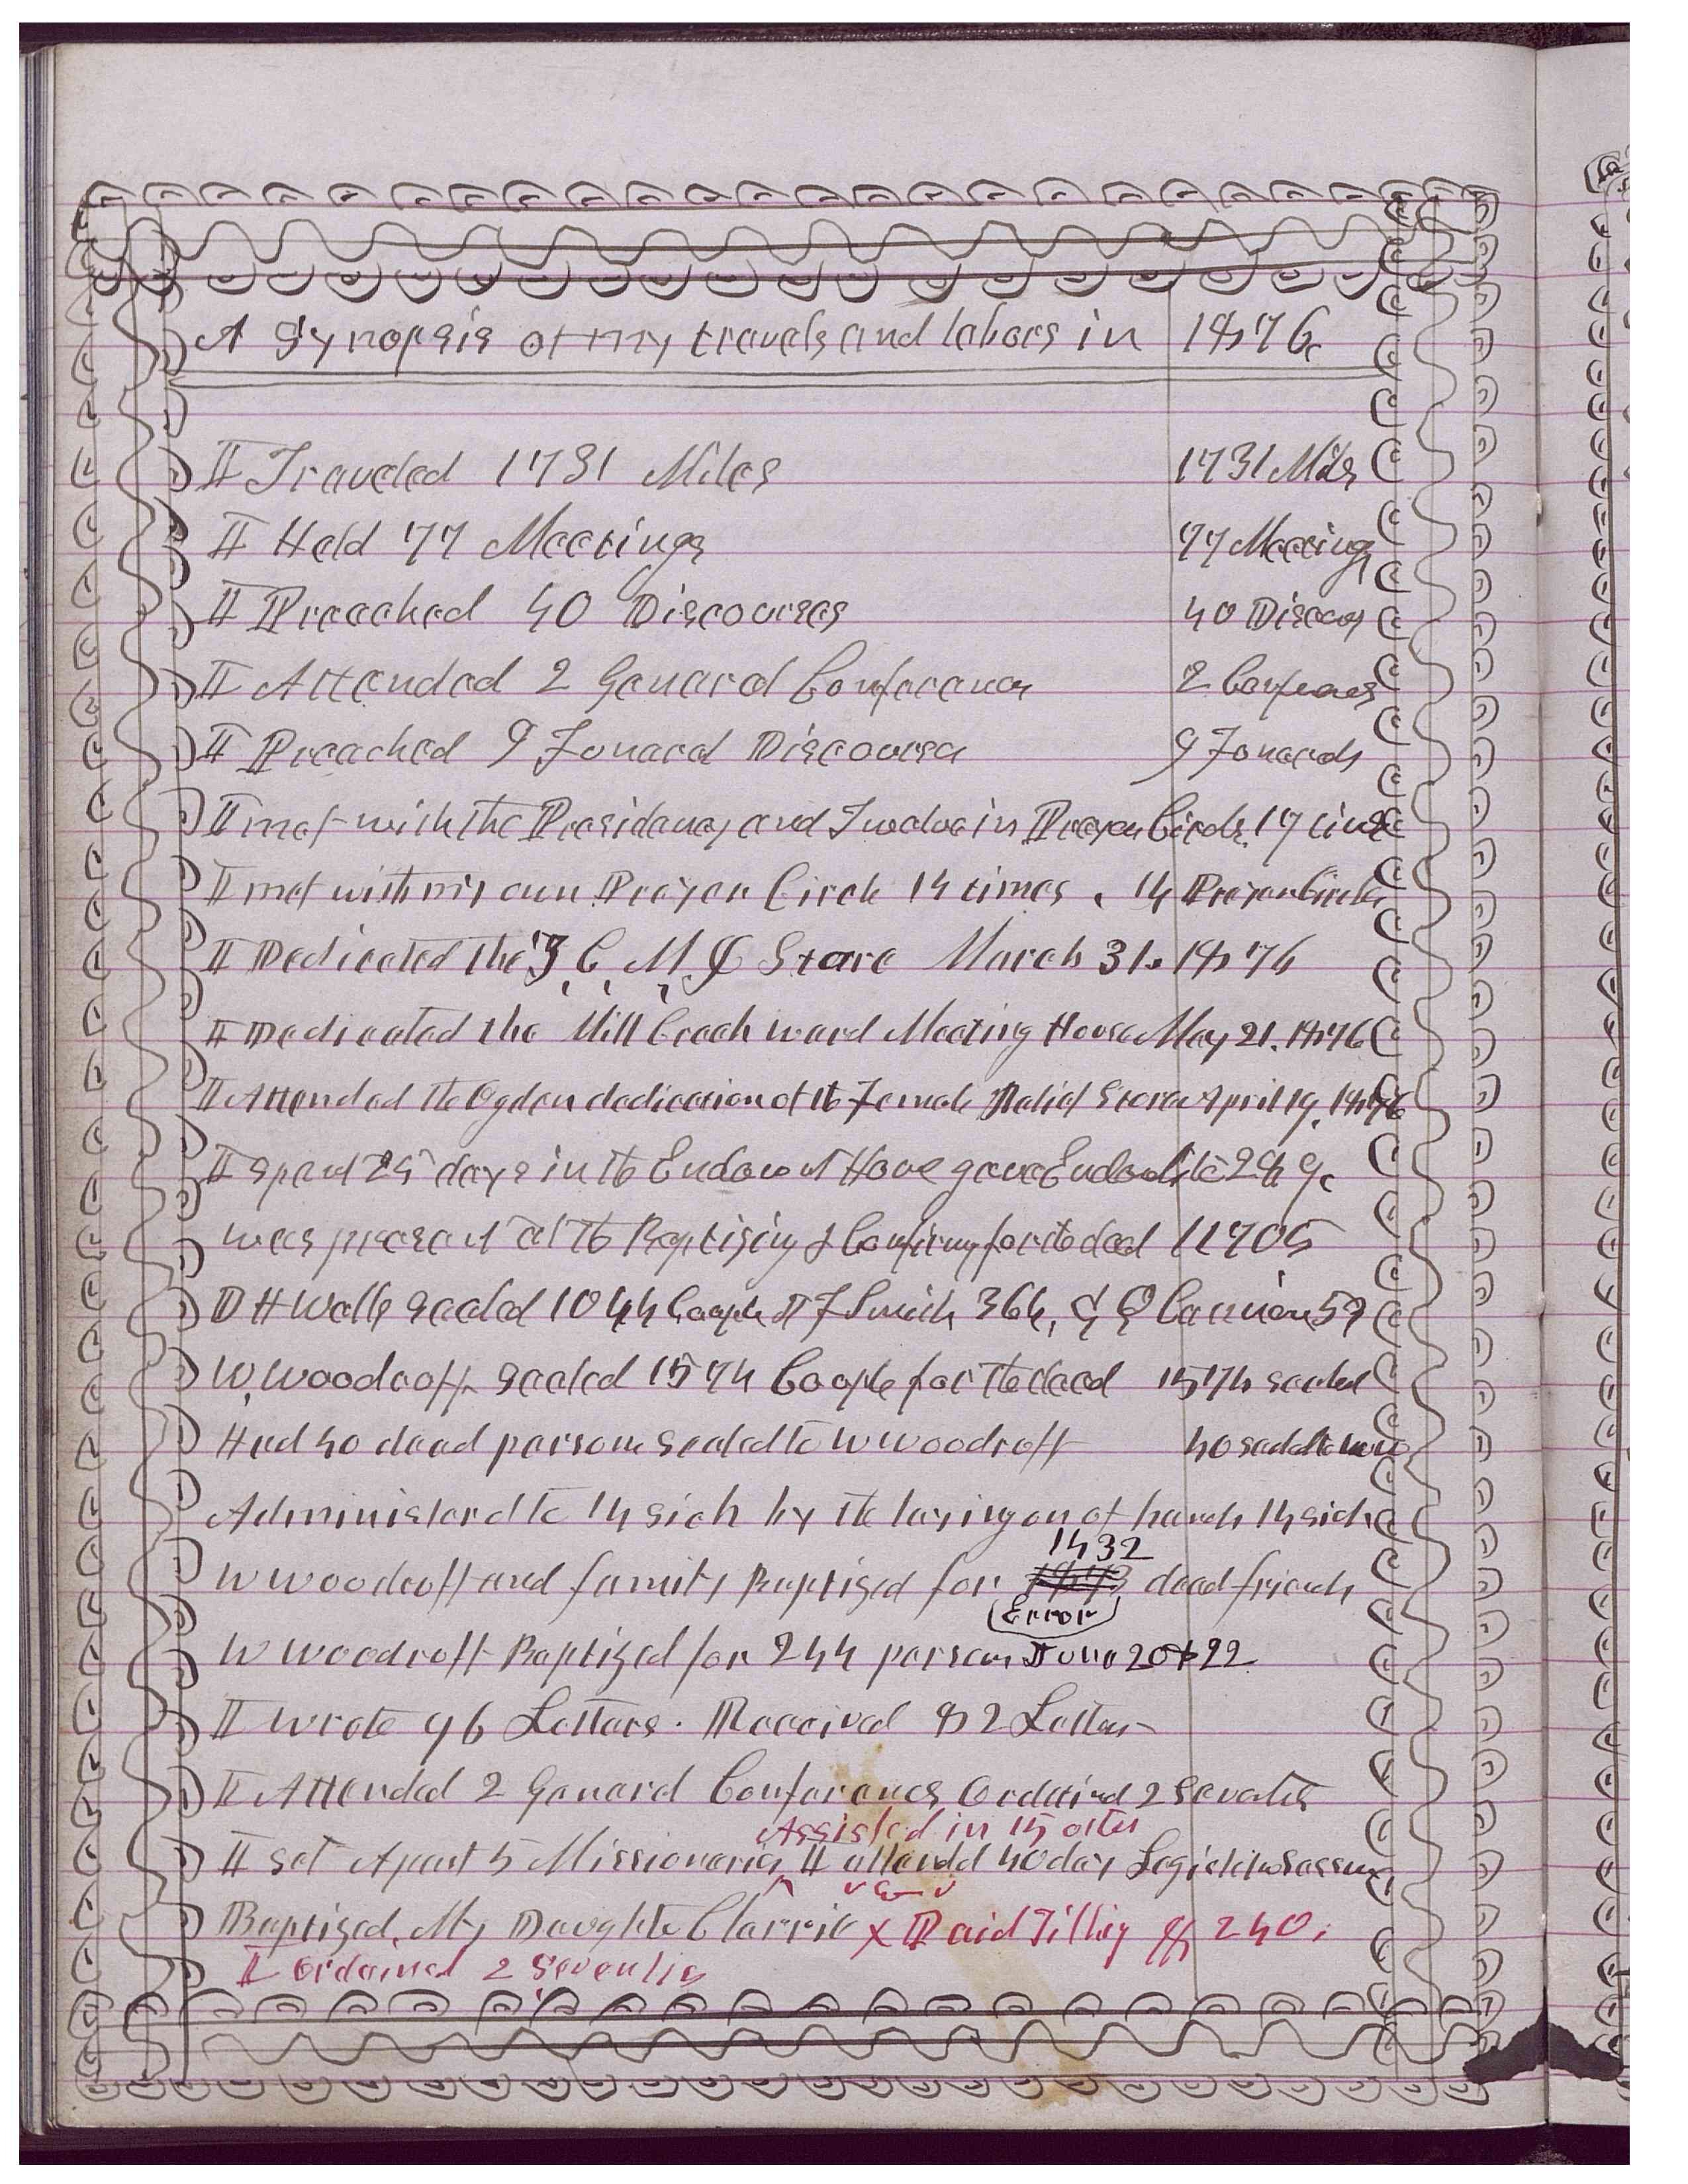 A Synopsis of my travels and labors in 1876
I Traveled 1731 Miles 1731 Miles
I Held 77 Meetings 77 Meetings
I Preached 40 Discourses 40 Discou
I Attended 2 General Conferences 2 Confernces
I Preached 9 Funeral Discourses 9 Funerals
I met with the Presidency and Twelve in Prayer Circle 17 times
I met with my own Prayer Circle 14 times. 14 Prayer Circles
I Dedicated the Z, C, M, I Store March 31. 1876
I Dedicated the Mill Creek ward Meeting House May 21. 1876
I Attended the Ogden dedication of the Female Relief Store April 19, 1876
I spent 25 days in the Endowmt House gave Endowmts to
was present at the Baptizing & Confirming for the dead 11705
D H Wells sealed 1044 Couple J F Smith 364, G Q Cannon 59
W, Woodruff sealed 1574 Couple for the dead 1574 sealed
Had 40 dead persons sealed to W Woodruff 40 sealed to
Administerd to 14 sick by the laying on of hands 14 sick
1432
W Woodruff and family Baptized for dead friends
(Error)
W Woodruff Baptized for 244 persons June 20 & 22
I wrote 96 Letters. Received 82 Letters
I Attended 2 General Conferences Ordained 2 Seventies
Assisted in 15 others
I set Apart 5 Missionaries, I attendd 40 day Legislativ
Baptized, My Daughter Clarrie x Paid Tithing $240.
I ordained 2 Seventies